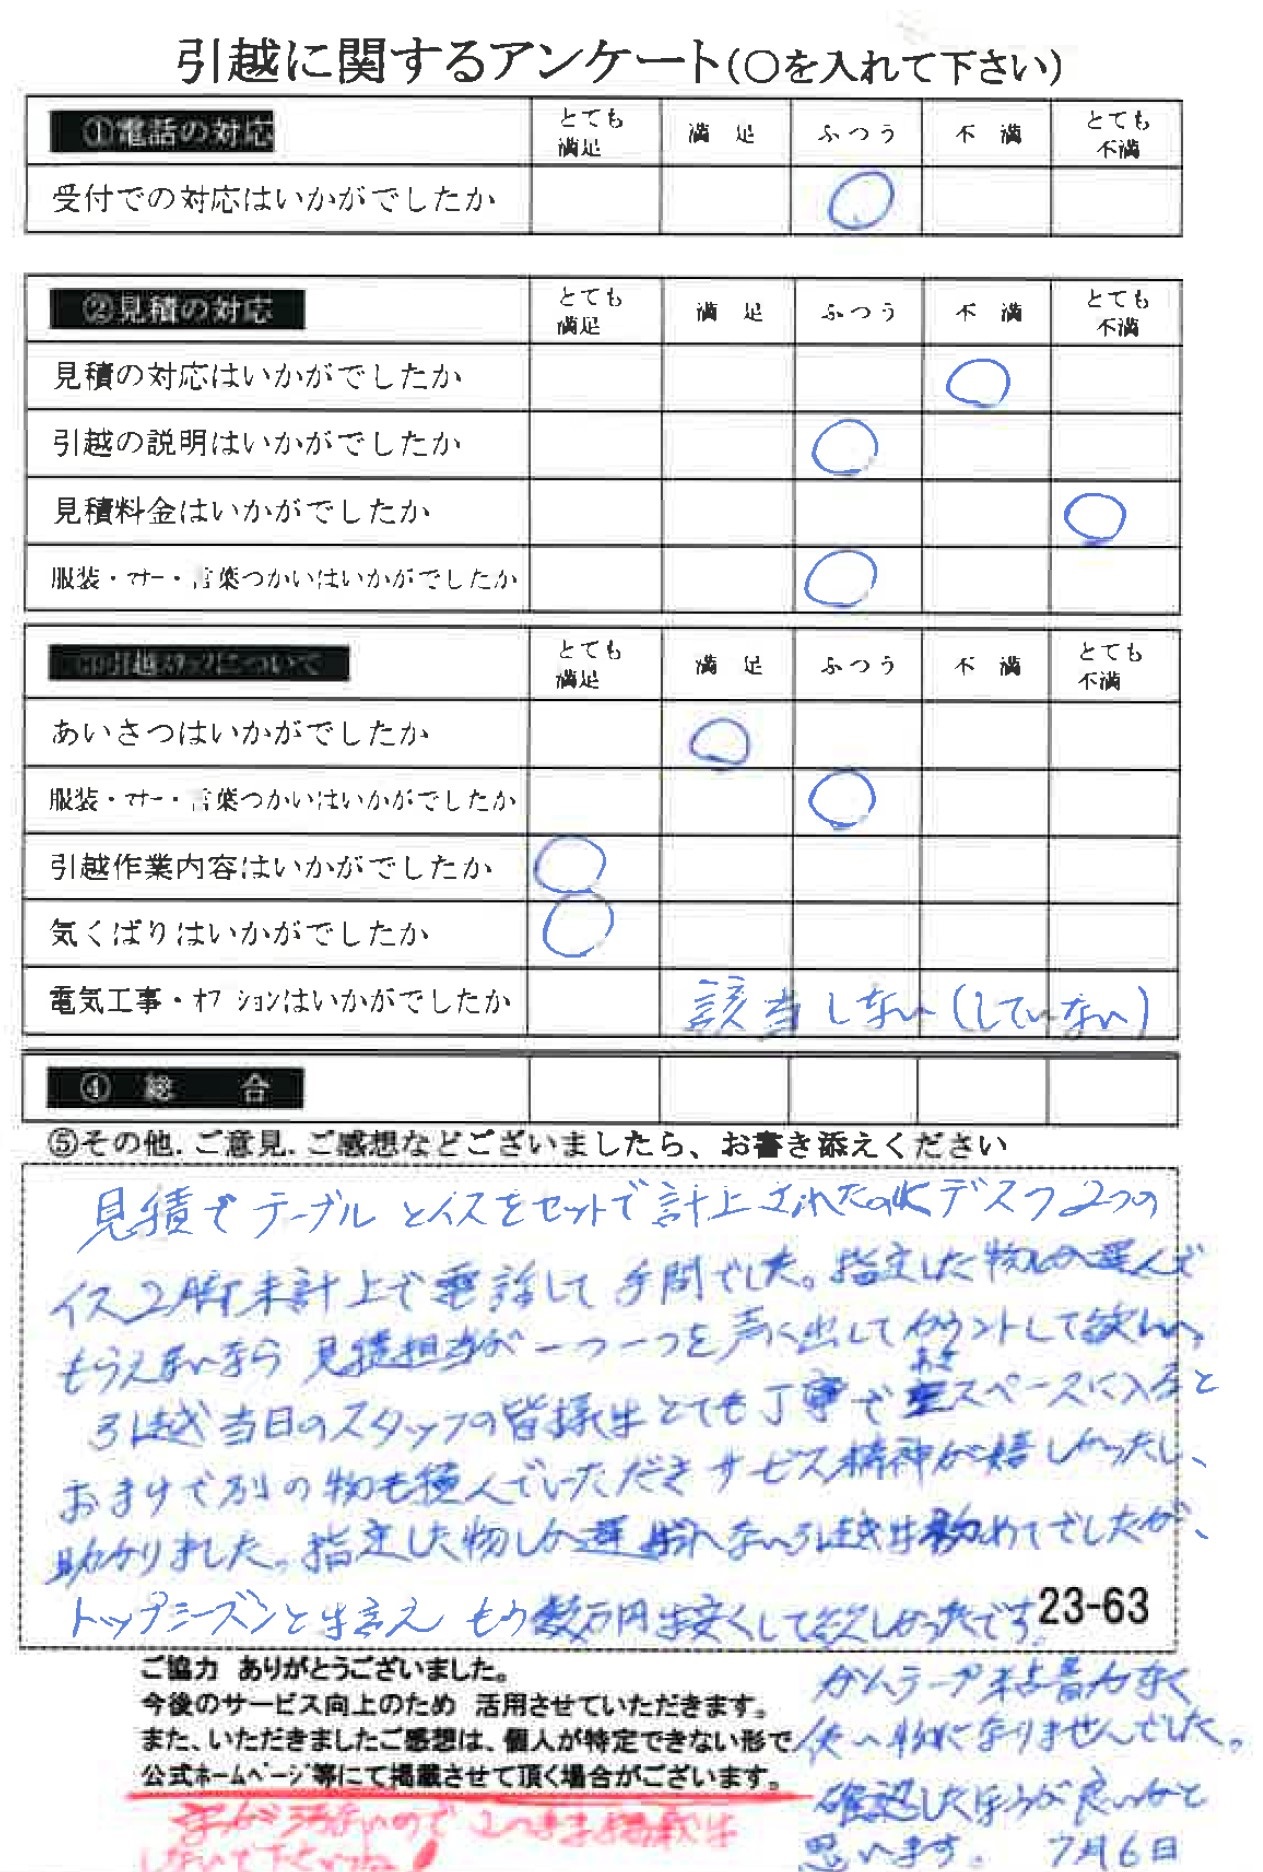 引越に関するアンケート(○を入れて下さい)
①電話の対応 とても満足 満足 ふつう 不満 とても不満
受付での対応はいかがでしたか
②見積の対応 とても満足 満足 ふつう 不満 とても不満
見積の対応はいかがでしたか
引越の説明はいかがでしたか
見積料金はいかがでしたか
服装・マナー・言葉つかいはいかがでしたか
③引越スタッフについて とても満足 満足 ふつう 不満 とても不満
あいさつはいかがでしたか
服装・マナー・言葉つかいはいかがでしたか
引越作業内容はいかがでしたか
気くばりはいかがでしたか
電気工事・オプションはいかがでしたか 該当しない(していない)
④総合
⑤その他.ご意見.ご感想などございましたら、お書き添えください
見積でテーブルとイスをセットで計上されたのにデスク2つの
イス2脚未計上で電話して手間でした。指定した物しか運んで
もらえないなら見積担当が一つ一つを声に出してカウントして欲しい。
引越当日のスタッフの皆様はとても丁寧で空スペースに入ると
おまけで別の物も積んでいただきサービス精神が嬉しかったし、
助かりました。指定した物しか運べない引越は初めてでしたが、
トップシーズンとは言えもう数万円は安くして欲しかったです。
23-63
ご協力 ありがとうございました。
今後のサービス向上のため 活用させていただきます。
また、いただきましたご感想は、個人が特定できない形で
公式ホームページ等にて掲載させて頂く場合がございます。
字が汚ないのでこのまま掲載は
しないで下さいね!
ガムテープ粘着力なく
使い物になりませんでした。
確認したほうが良いかと
思います。 7月6日